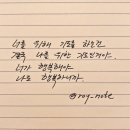 너를 위해 기도를 하는건
결국 나를 위한 기도인거야.
너가 행복해야
나도 행복하니까.
@roy_note